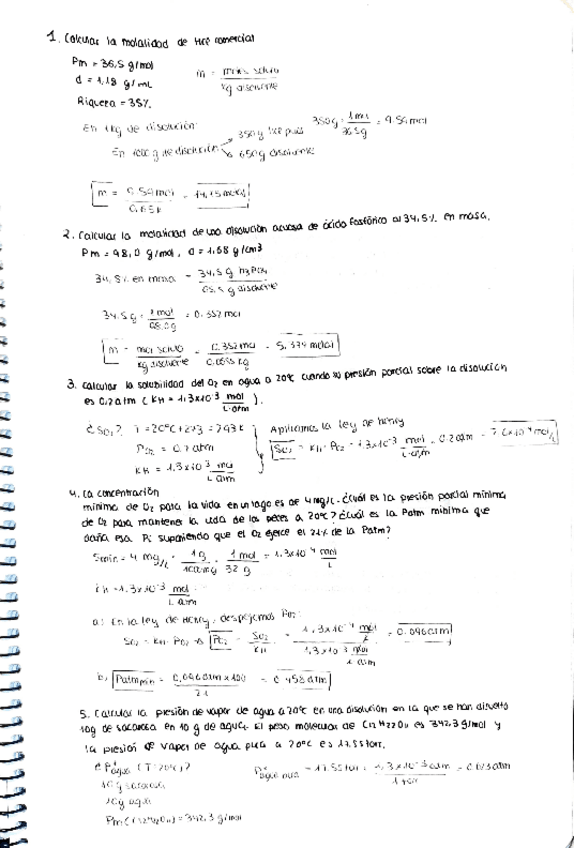 1. Calcular la molalidad de HCl comercial
Pm = 36,5 g/mol
d = 1,18 g/mL
m = masa soluto / kg disolvente
Riqueza = 35%
En 1kg de disolución:
En 1000 g de disolución
350g HCl puro
650g disolvente
350g · 1mol / 36.5g = 9.59 mol
m = 9.59 mol / 0.65 k =
2. Calcular la molalidad de una disolución acuosa de ácido fosfórico al 34,5% en masa.
Pm = 98,0 g/mol, d = 1,68 g/cm3
34,5% en masa = 34,5 g H3PO4 / 65,5 g disolvente
34.5 g · 1 mol / 98.0g = 0.352 mol
m = mol soluto / kg disolvente = 0.352 mol / 0.0655 kg = 5.374 molal
3. Calcular la solubilidad del O2 en agua a 20°C cuando su presión parcial sobre la disolución
es 0,2 atm (KH = 1,3x10-3 mol / L·atm).
¿SO2? T = 20°C + 273 = 293K
Aplicamos la Ley de Henry
PO2 = 0.2 atm
SO2 = KH · PO2 = 1.3x10-3 mol / L·atm · 0.2 atm =
KH = 1,3x10-3 mol / L·atm
4. La concentración
mínima de O2 para la vida en un lago es de 4 mg/L. ¿Cuál es la presión parcial mínima
de O2 para mantener la vida de los peces a 20°C? ¿Cuál es la Patm mínima que
daría esa Pi suponiendo que el O2 ejerce el 21% de la Patm?
Smin = 4 mg/L · 1g / 1000mg · 1 mol / 32 g = 1,3x10-4 mol / L
KH = 1,3x10-3 mol / L·atm
a) En la ley de Henry, despejamos PO2:
SO2 = KH · PO2 → PO2 = SO2 / KH = 1,3x10-4 mol / L / 1,3x10-3 mol / L·atm = 0.096 atm
b) Patm min = 0,096 atm x 100 / 21 = 0.458 atm
5. Calcular la presión de vapor de agua a 20°C en una disolución en la que se han disuelto
10g de sacarosa en 10 g de agua. El peso molecular de C12H22O11 es 342.3 g/mol y
la presión de vapor de agua pura a 20°C es 17.55 torr.
¿Págua (T=20°C)?
P°agua pura = 17.55 torr · 1,3x10-3 atm / 1 torr = 0.023 atm
10g sacarosa
10g agua
Pm(C12H22O11) = 342.3 g/mol